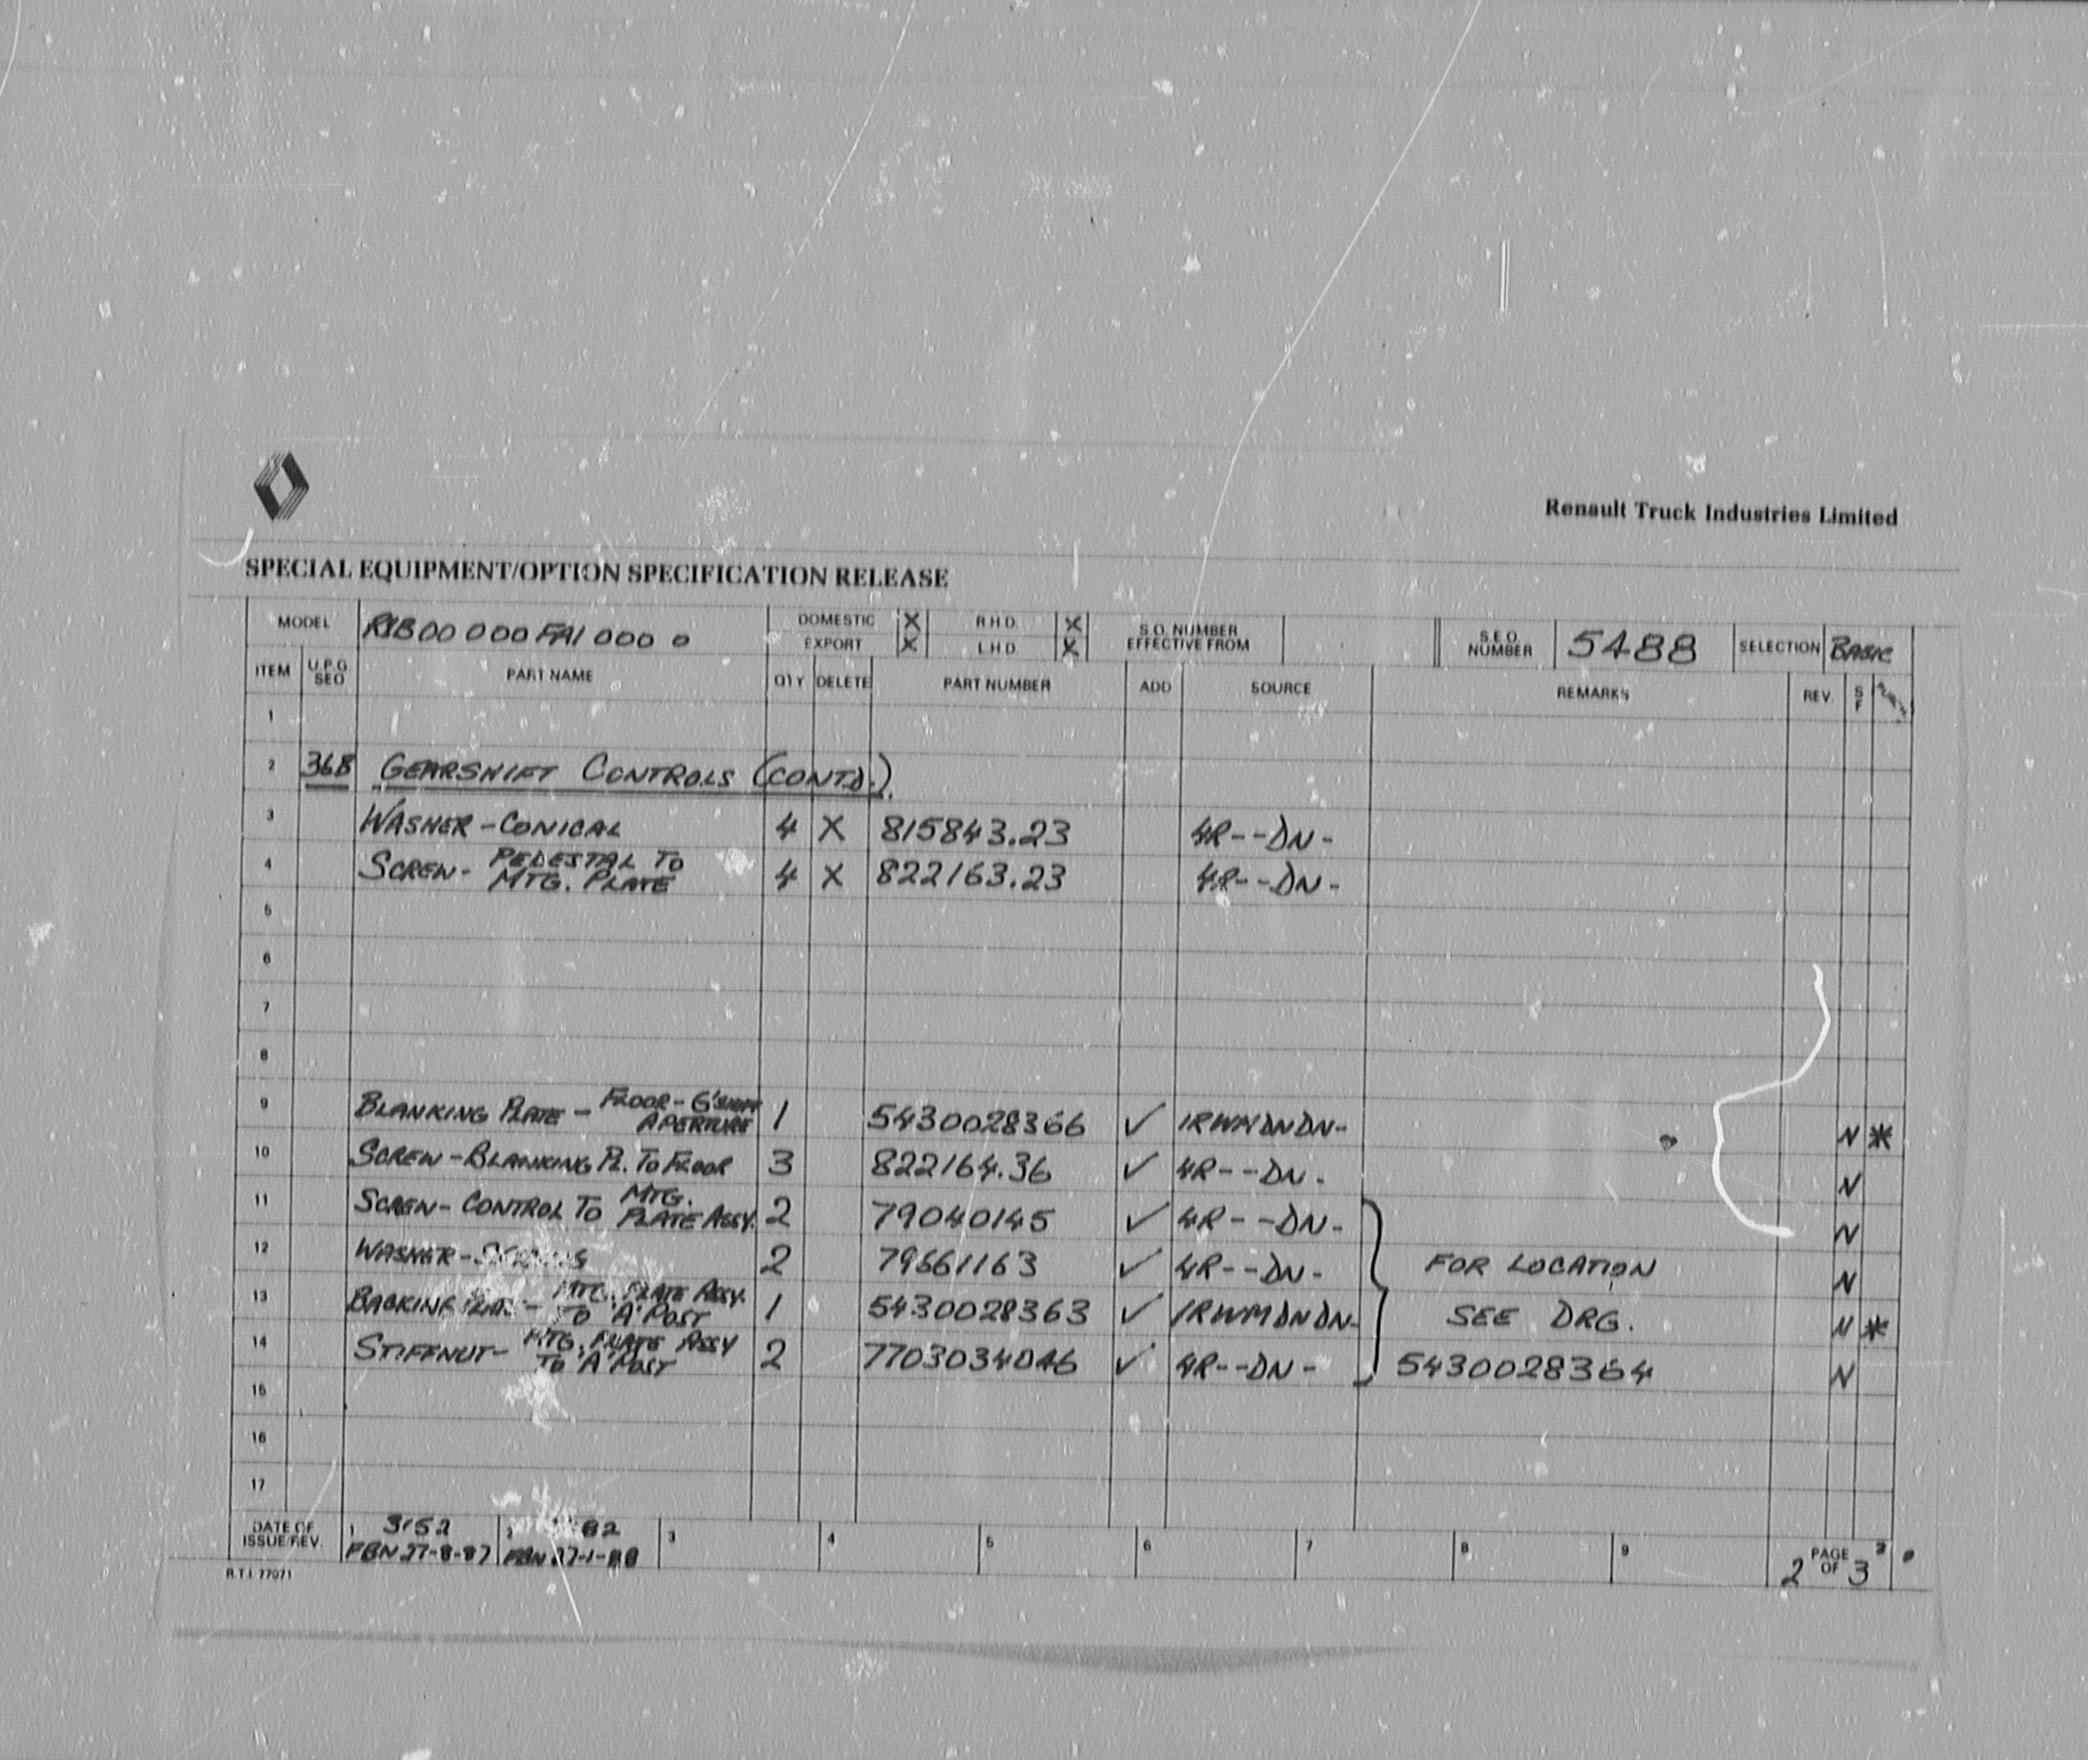 Renault Truck Industries Limited
SPECIAL EQUIPMENT/OPTION SPECIFICATION RELEASE
MODEL DOMESTIC X R.H.D. X S.O. NUMBER S.E.O. 5488 SELECTION BASIC
EXPORT X L.H.D. X EFFECTIVE FROM NUMBER
ITEM U.P.G. SEO PART NAME QTY DELETE PART NUMBER ADD SOURCE REMARKS REV. S F
1
2 36B GEARSHIFT CONTROLS (CONTD.)
3 WASHER - CONICAL 4 X 815843.23 4R--DN-
4 SCREW - PEDESTAL TO MTG. PLATE 4 X 822163.23 4R--DN-
5
6
7
8
9 BLANKING PLATE - FLOOR - G'SHIFT APERTURE 1 5430028366 ✓ 1RWMDNDN- N *
10 SCREW - BLANKING PL. TO FLOOR 3 822164.36 ✓ 4R--DN- N
11 SCREW - CONTROL TO MTG. PLATE ASSY. 2 79040145 ✓ 4R--DN- N
12 WASHER - 2 79661163 ✓ 4R--DN- FOR LOCATION N
13 MTG. PLATE ASSY. TO 'A' POST 1 5430028363 ✓ 1RWMDNDN- SEE DRG. N *
14 STIFFNUT - MTG. PLATE ASSY TO 'A' POST 2 ✓ 4R--DN- 5430028364 N
15
16
17
DATE OF ISSUE/REV. 1 3152 2 82 3 4 5 6 7 8 9 PAGE 2 OF 3
FBN 27-8-87 FBN 27-1-88
R.T.I. 77071